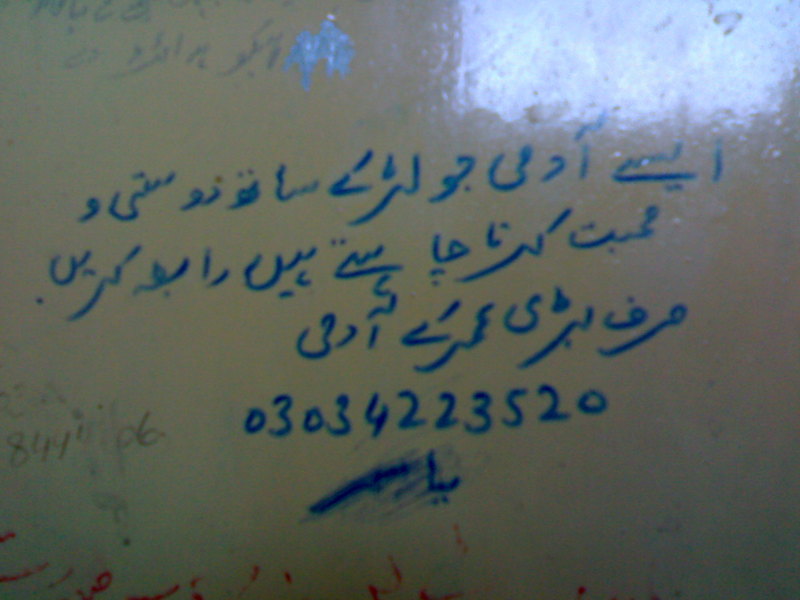 ایسے آدمی جو لڑکے ساتھ دوستی و
محبت کرنا چاہتے ہیں رابطہ کریں.
صرف بڑی عمر کے آدمی
03034223520